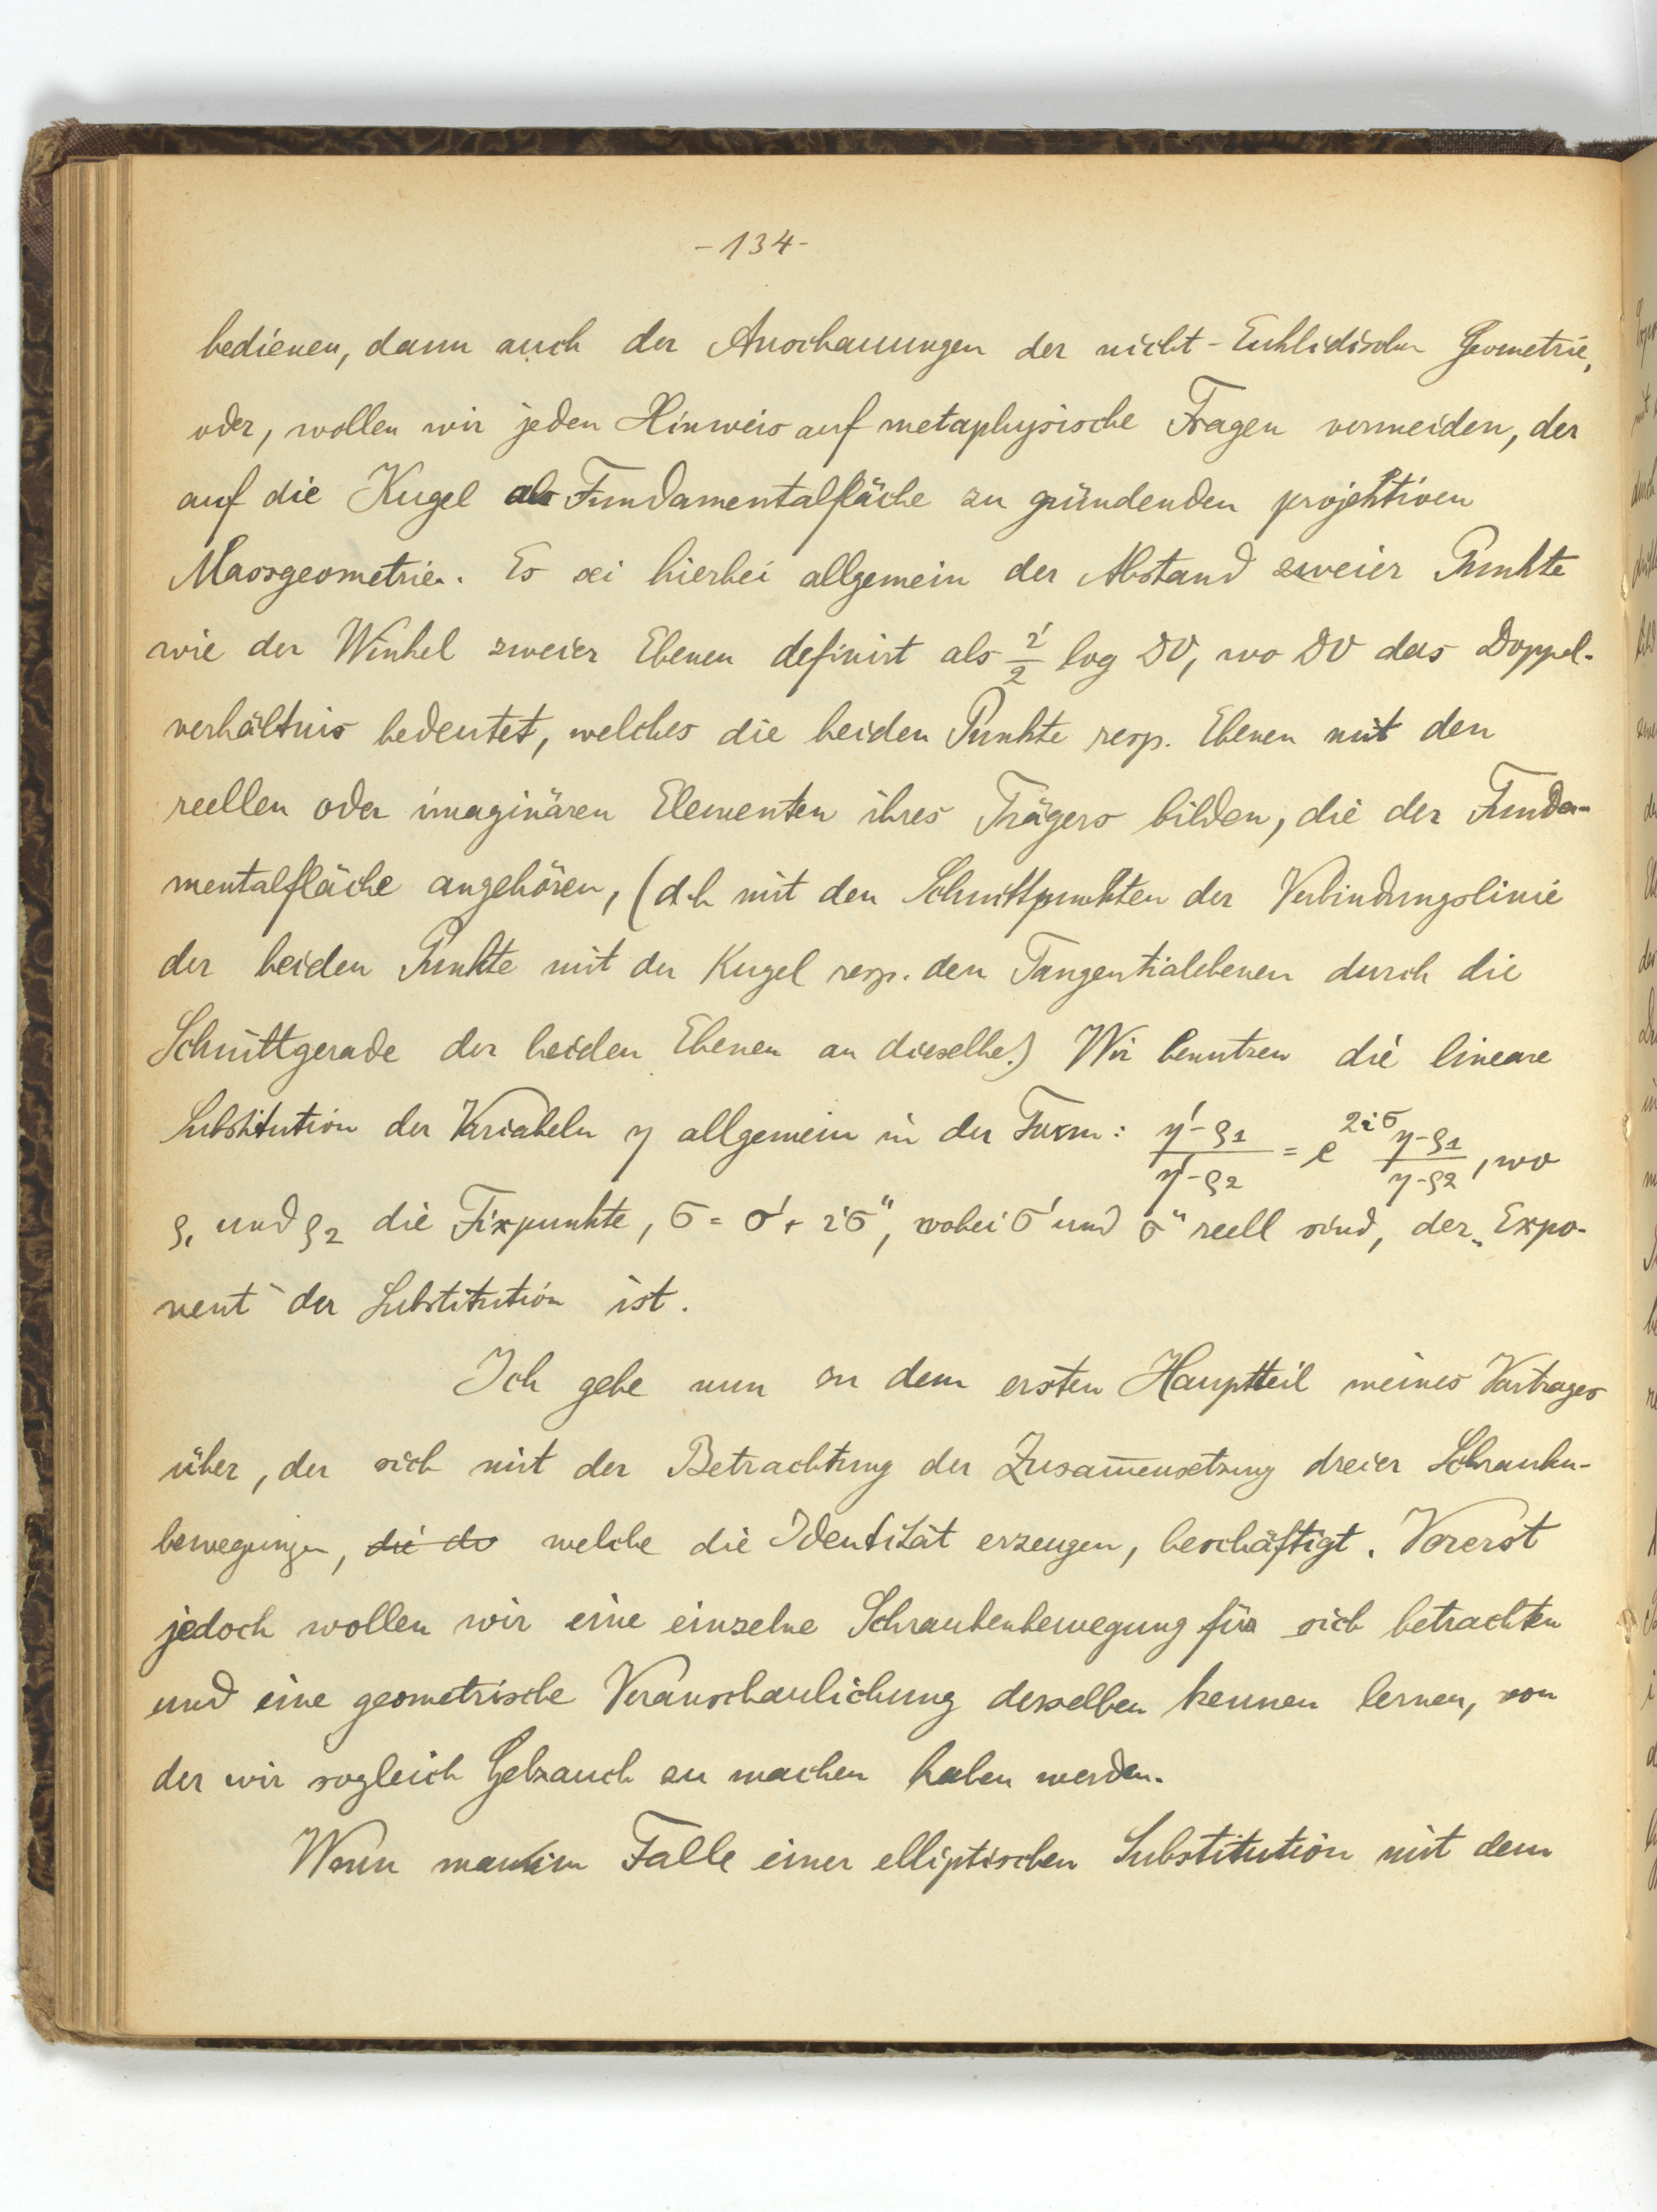 -134-
bedienen, dann auch der Anschauungen der nicht-Euklidischen Geometrie,
oder, wollen wir jeden Hinweis auf metaphysische Fragen vermeiden, der
auf die Kugel als Fundamentalfläche zu gründenden projektiven
Massgeometrie. Es sei hierbei allgemein der Abstand zweier Punkte
wie der Winkel zweier Ebenen definirt als i/2 log DV, wo DV das Doppel-
verhältnis bedeutet, welches die beiden Punkte resp. Ebenen mit den
reellen oder imaginären Elementen ihres Trägers bilden, die der Funda-
mentalfläche angehören, (d.h mit den Schnittpunkten der Verbindungslinie
der beiden Punkte mit der Kugel resp. den Tangentialebenen durch die
Schnittgerade der beiden Ebenen an dieselbe.) Wir benutzen die lineare
Substitution der Variabeln η allgemein in der Form: (η'-ς1)/(η'-ς2) = e^{2iσ} (η-ς1)/(η-ς2), wo
ς1 und ς2 die Fixpunkte, σ = σ' + iσ", wobei σ' und σ" reell sind, der „Expo-
nent“ der Substitution ist.
Ich gehe nun zu dem ersten Hauptteil meines Vortrages
über, der sich mit der Betrachtung der Zusam̅ensetzung dreier Schrauben-
bewegungen, die do welche die Identität erzeugen, beschäftigt. Vorerst
jedoch wollen wir eine einzelne Schraubenbewegung für sich betrachten
und eine geometrische Veranschaulichung derselben kennen lernen, von
der wir sogleich Gebrauch zu machen haben werden.
Wenn man im Falle einer elliptischen Substitution mit dem